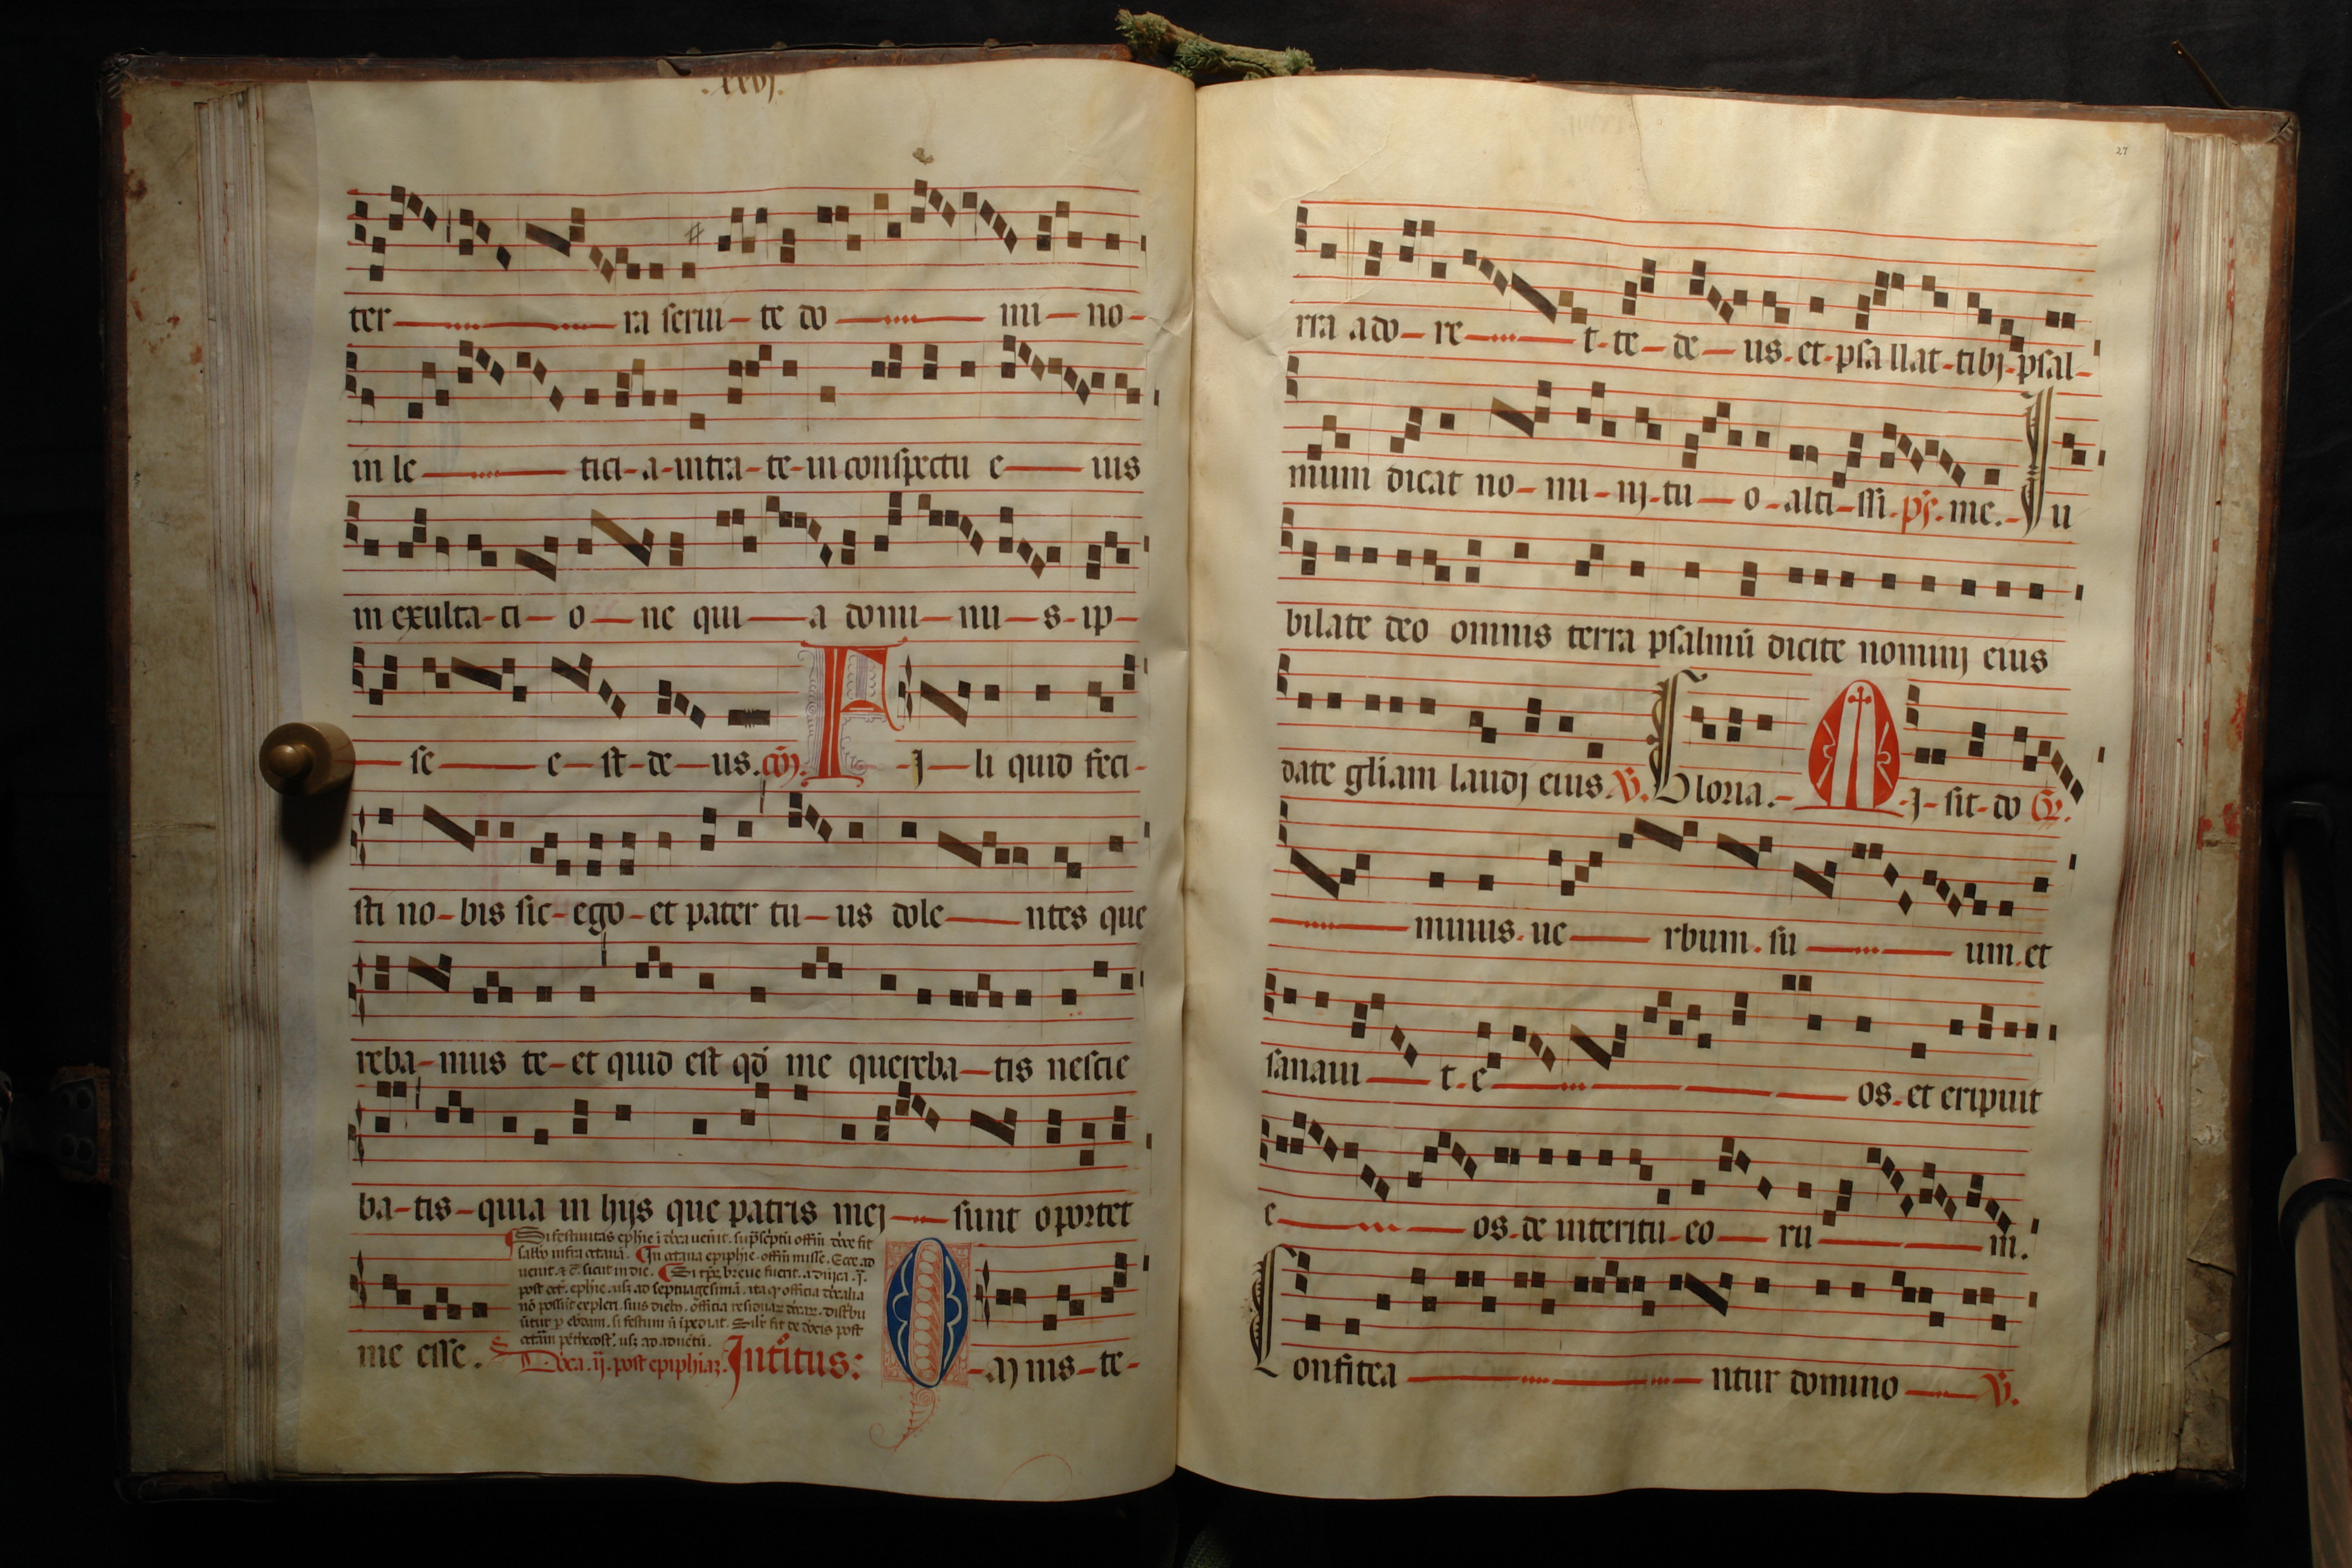 .xxvj.
ter ra seruite do mino
in le ticia intrate in conspectu e ius
in exultati o ne qui a domi nu s ip
se e st de us. cō. F ı li quid feci
sti nobis sic ego et pater tu us dole ntes que
reba mus te et quid est qd́ me quereba tis nescie
ba tis quia in hijs que patris mej sunt oportet
venit. ⁊ c̄. sicut in die.
me esse.
Dn̄ica .ij. post epiphiaꝫ. Introitus: O M nis te
27
rra ado re t te de us. et psallat tibj psal
mum dicat no mi nj tu o alti ssi. p̄s. me. Iu
bilate deo omnis terra psalmū dicite nominj eius
date gl̄iam laudj eius. V̄. Gloria. M ı sit do G̃r.
minus. ue rbum. su um. et
sanaui t. e os. et eripuit
e os. de interitu eo ru m.
Confitea ntur domino V̄.